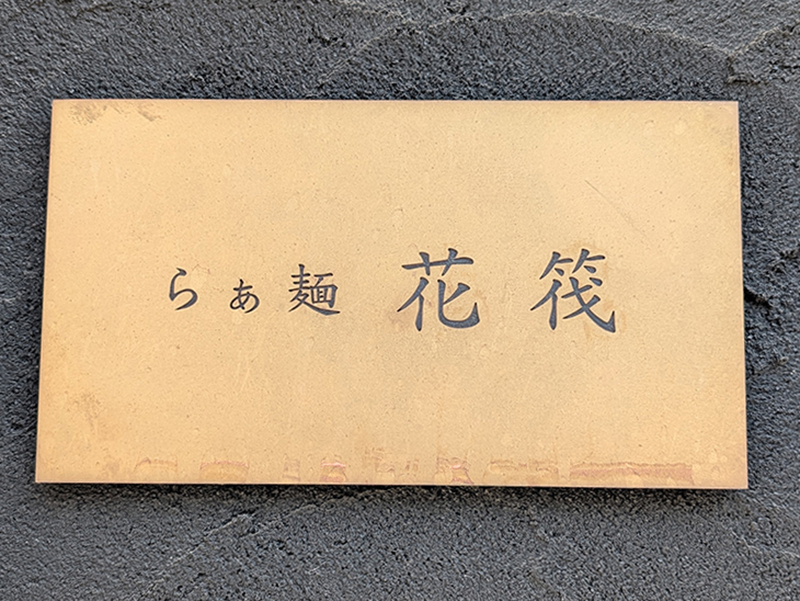 らぁ麺 花筏